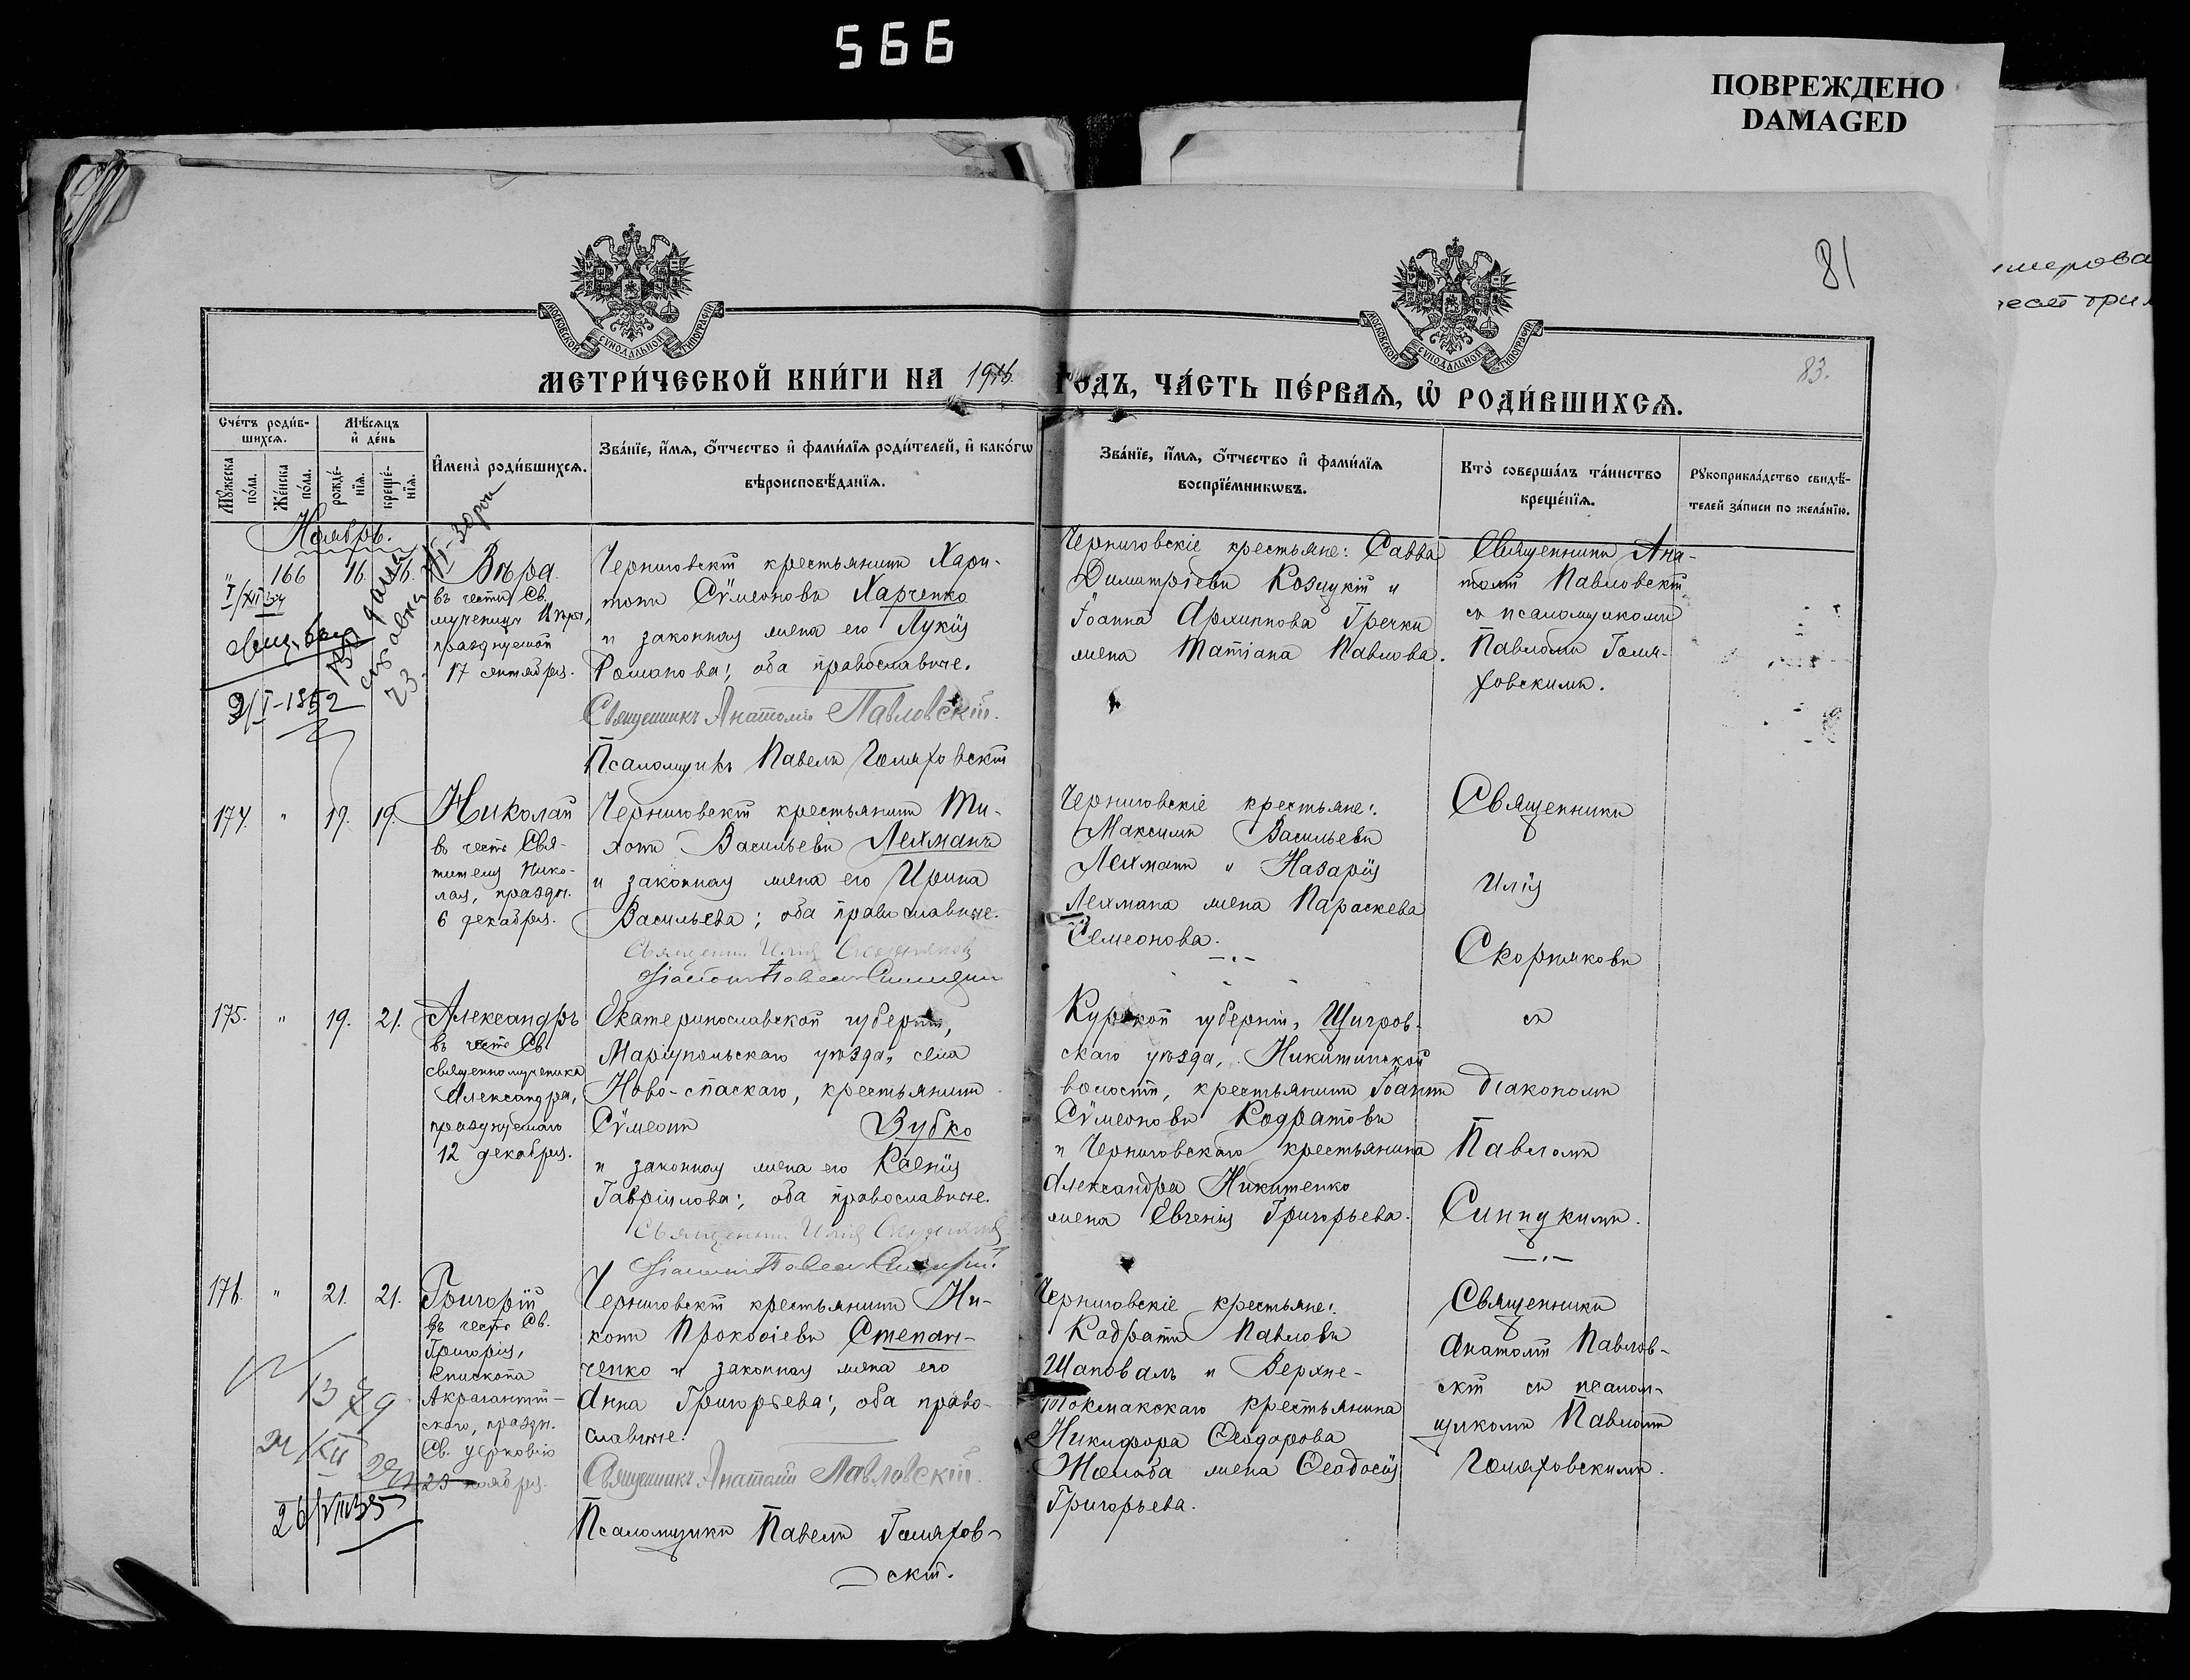 566
ПОВРЕЖДЕНО
DAMAGED
81
83.
МОСКОВСКОЙ СѴНОДАЛЬНОЙ ТИПОГРАФІИ
МОСКОВСКОЙ СѴНОДАЛЬНОЙ ТИПОГРАФІИ
МЕТРИ́ЧЕСКОЙ КНИ́ГИ НА 1916. ГОДЪ, ЧА́СТЬ ПЕ́РВАЯ, Ѡ҆ РОДИ́ВШИХСЯ.
Сче́тъ роди́в-
шихся.
Мѣ́сяцъ
и҆ де́нь
Мꙋ́жеска
по́ла.
Же́нска
по́ла.
рожде́-
нїя.
креще́-
нїя.
И҆мена̀ роди́вшихся.
Зва́нїе, и҆́мя, ѻ҆́тчество и҆ фами́лїя роди́телей, и҆ како́гѡ
вѣроисповѣ́данїя.
Зва́нїе, и҆́мя, ѻ҆́тчество и҆ фами́лїя
воспрїе́мникѡвъ.
Кто̀ соверша́лъ та́инство
креще́нїя.
Рꙋкоприкла́дство свидѣ́-
телей за́писи по жела́нїю.
Ноябрь.
" 166 16. 16.
Вѣра
въ честь Св.
мученицы Вѣры,
празднуемой
17 сентября.
Черниговскій крестьянинъ Хари-
тонъ Сѵмеоновъ Харченко
и законная жена его Лукія
Романова; оба православные.
Священникъ Анатолій Павловскій.
Псаломщикъ Павелъ Голяховскій
Черниговскіе крестьяне: Савва
Димитріевъ Козицкій и
Іоанна Архиппова Гречки
жена Татіана Павлова.
Священникъ Ана-
толій Павловскій
съ псаломщикомъ
Павломъ Голя-
ховскимъ.
174. " 19. 19.
Николай
въ честь Свя-
тителя Нико-
лая, праздн.
6 декабря.
Черниговскій крестьянинъ Ти-
хонъ Васильевъ Лехманъ
и законная жена его Ирина
Васильева; оба православные.
Священникъ Илія Скорняковъ
Діаконъ Павелъ Синицкій
Черниговскіе крестьяне:
Максимъ Васильевъ
Лехманъ и Назарія
Лехмана жена Параскева
Семеонова.
Священникъ
Илія
Скорняковъ
съ
діакономъ
Павломъ
Синицкимъ.
175. " 19. 21.
Александръ
въ честь Св.
священномученика
Александра,
празднуемаго
12 декабря.
Екатеринославской губерніи,
Маріупольскаго уѣзда, села
Ново-спаскаго, крестьянинъ
Сѵмеонъ Зубко
и законная жена его Ксенія
Гавріилова; оба православные.
Священникъ Илія Скорняковъ
Діаконъ Павелъ Синицкій.
Курской губерніи, Щигров-
скаго уѣзда, Никитинской
волости, крестьянинъ Іоаннъ
Сѵмеоновъ Кодратовъ
и Черниговскаго крестьянина
Александра Никитенко
жена Евгенія Григорьева.
176. " 21. 21.
Григорій
въ честь Св.
Григорія,
Епископа
Акрагантій-
скаго, праздн.
Св. церковію
23 ноября.
Черниговскій крестьянинъ Ни-
конъ Прокопіевъ Степан-
ченко и законная жена его
Анна Григорьева; оба право-
славные.
Священникъ Анатолій Павловскій.
Псаломщикъ Павелъ Голяхов-
скій.
Черниговскіе крестьяне:
Кодратъ Павловъ
Шаповалъ и Верхне-
Токмакскаго крестьянина
Никифора Ѳеодорова
Жолоба жена Ѳеодосія
Григорьева.
Священникъ
Анатолій Павлов-
скій съ псалом-
щикомъ Павломъ
Голяховскимъ.